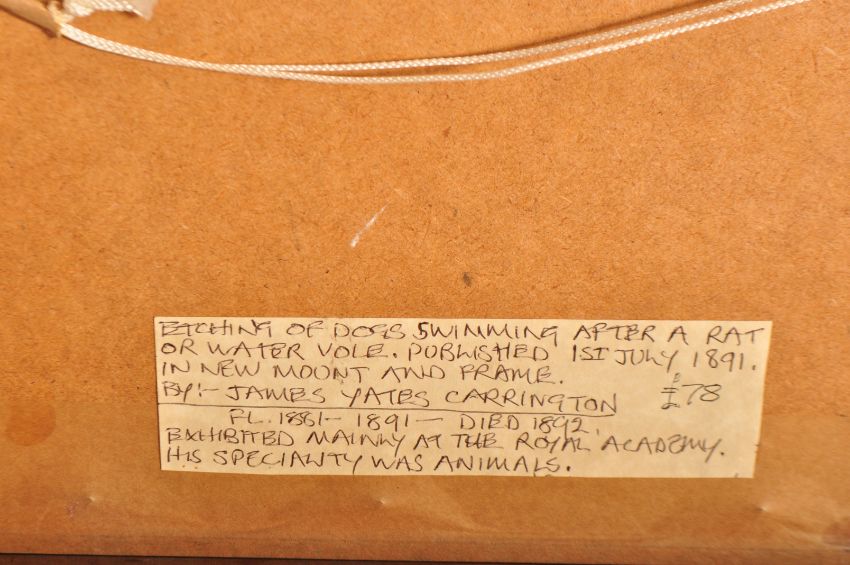 ETCHING OF DOGS SWIMMING AFTER A RAT
OR WATER VOLE. PUBLISHED 1ST JULY 1891.
IN NEW MOUNT AND FRAME.
BY:- JAMES YATES CARRINGTON £78
FL. 1881- 1891- DIED 1892.
EXHIBITED MAINLY AT THE ROYAL ACADEMY.
HIS SPECIALITY WAS ANIMALS.